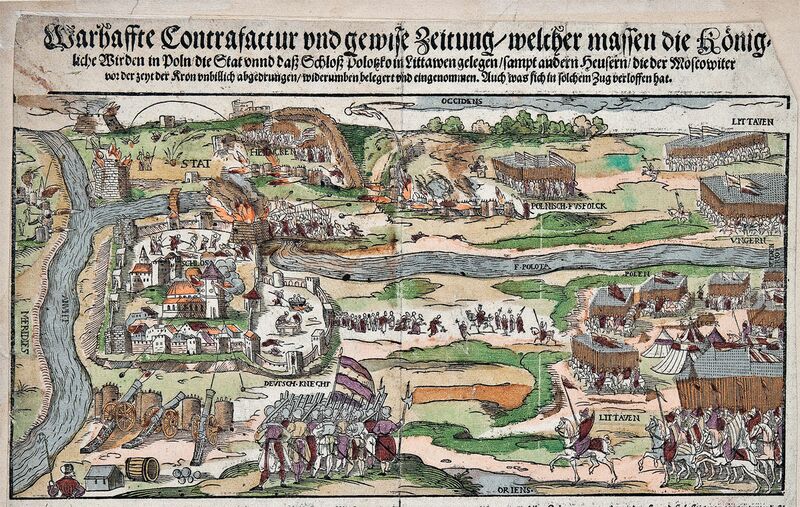 Warhaffte Contrafactur vnd gewise Zeitung/welcher massen die König-
liche Wirden in Poln/die Stat vnnd daß Schloß Polotzko in Littawen gelegen/sampt andern Heusern/die der Moscowiter
vor der zeyt der Kron vnbillich abgedrungen/widerumben belegert vnd eingenommen. Auch was sich in solchem Zug verloffen hat.
OCCIDENS
LITTAVEN
STAT
POLNISCH·FVSFOLCK
VNGERN
SCHLOS
F·POLOTA
POLEN
MERIDIES
DEVTSCH·KNECHT
LITTAVEN
ORIENS·